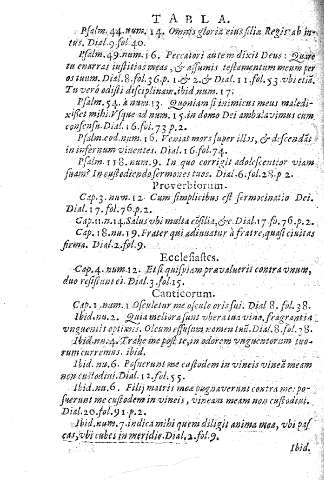 TABLA.
Psalm. 44. num. 14. Omnis gloria eius filiæ Regis ab in-
tus. Dial. 9. fol. 40.
Psalm. 49. num. 16. Peccatori autem dixit Deus: Quare
tu enarras iustitias meas, & assumis testamentum meum per
os tuum. Dial. 8. fol. 36. p. 1. & 2. & Dial. 11. fol. 53. vbi etiã.
Tu verò odisti desciplinam. ibid num. 17.
Psalm. 54. à num. 13. Quoniam si inimicus meus maledi-
xisset mihi. Vsque ad num. 15. in domo Dei ambulavimus cum
consensu. Dial. 16. fol. 73. p. 2.
Psalm. eod. num. 16. Veniat mors super illos, & descendãt
in infernum viventes. Dial. 16. fol. 74.
Psalm. 118. num. 9. In quo corrigit adolescentior viam
suam? In custodiendo sermones tuos. Dial. 6. fol. 28. p. 2
Proverbiorum.
Cap. 3. num. 12. Cum simplicibus est sermocinatio Dei.
Dial. 17. fol. 76. p. 2.
Cap. 11. n. 14. Salus vbi multa cõsilia, &c. Dial. 17. fo. 76. p. 2.
Cap. 18. nu. 19. Frater qui adiuuatur à fratre, quasi civitas
firma. Dial. 2. fol. 9.
Ecclesiastes.
Cap. 4. num. 12. Et si quispiam prævaluerit contra vnum,
duo resistunt ei. Dial. 3. fol. 15.
Canticorum.
Cap. 1. num. 1 Osculetur me osculo oris sui. Dial 8. fol. 38.
Ibid. nu. 2. Quia meliora sunt vbera tua vino, fragrantia
vnguentis optimis. Oleum effusum nomen tuũ. Dial. 8. fol. 38.
Ibid. nu. 4. Trahe me post te, in odorem vnguentorum tuo-
rum curremus. ibid.
Ibid. nu. 6. Posuerunt me custodem in vineis vineã meam
non custodivi. Dial. 12. fol. 55.
Ibid. nu. 6. Filij matris meæ pugnaverunt contra me po-
suerunt me custodem in vineis, vineam meam non custodivi.
Dial. 20. fol. 91. p. 2.
Ibid. num. 7. indica mihi quem diligit anima mea, vbi pas-
cas, vbi cubes in meridie. Dial. 2. fol. 9.
Ibid.